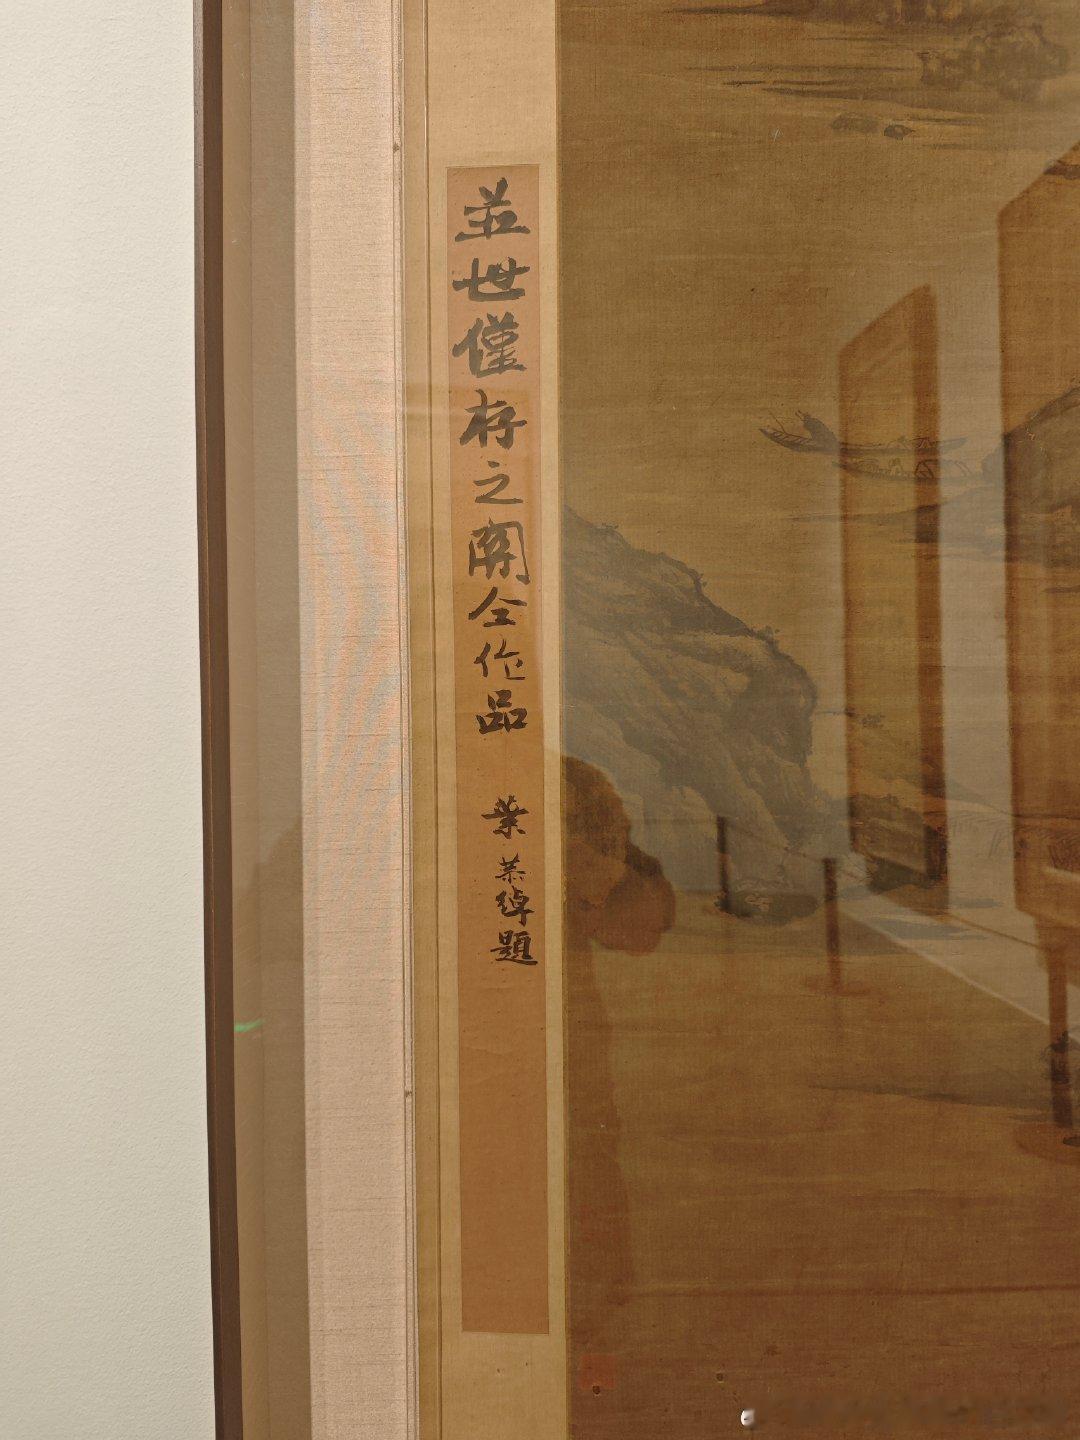 並世僅存之關仝作品
葉恭綽題